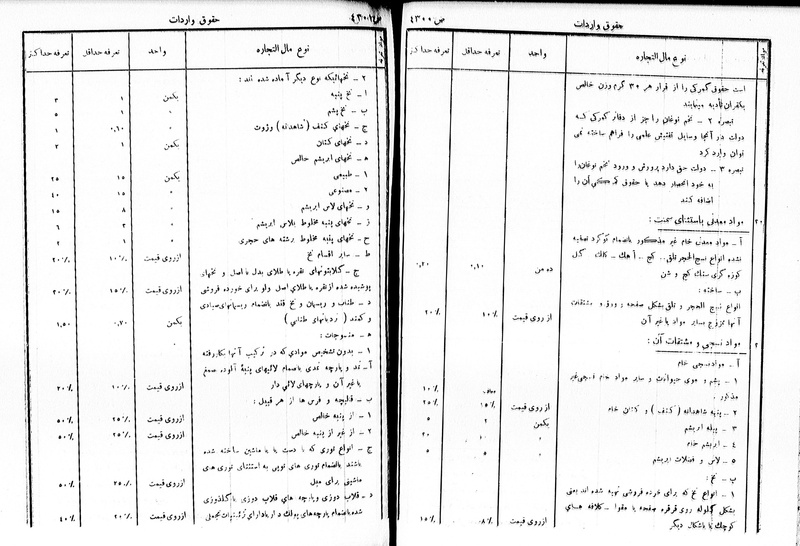 ص ٤٣٠٠
حقوق واردات
نوع مال التجاره
واحد
تعرفه حداقل
تعرفه حداکثر
است حقوق گمرکی را از قرار هر ۳۰ گرم وزن خالص
یکقران تأدیه مینمایند
تبصره ۲ ـ تخم نوغان را جز از دفاتر گمرکی که
دولت در آنجا وسایل تفتیش علمی را فراهم ساخته نمی
توان وارد کرد
تبصره ۳ ـ دولت حق دارد پرورش و ورود تخم نوغان را
به خود انحصار دهد یا حقوق گمرکی آن را
اضافه کند
۲۰ مواد معدنی باستثنای سمنت :
آ ـ مواد معدنی خام غیر مذکور بانضمام گوگرد تصفیه
نشده انواع نسج الحجر تلق .. گچ .. آهک ـ کائلک گل
کوزه گری سنک گچ و شن ده من ۰٫۱۰ ۰٫۲۰
ب ـ ساخته :
انواع نسج الحجر و تلق بشکل صفحه و ورق و مشتقات
آنها ممزوج بسایر مواد یا غیر آن از روی قیمت ۱۰٪ ۲۰٪
۲ مواد نسجی و مشتقات آن :
آ ـ مواد نسجی خام
۱ ـ پشم و موی حیوانات و سایر مواد خام نسجی غیر
مذکور : معاف ۱۰٪
۲ ـ پنبه شاهدانه ( کنف ) و کتان خام ازروی قیمت ۱۵٪ ۲۵٪
۳ ـ پیله ابریشم یکمن ۲ ۵
۴ ـ ابریشم خام ۱۰ ۲۰
۵ ـ لاس و فضلات ابریشم ۵ ۵
ب ـ نخ :
۱ ـ انواع نخ که برای خرده فروشی تهیه شده اند یعنی
بشکل گلوله روی قرقره صفحه یا مقوا ـ کلافه های
کوچک یا باشکال دیگر ازروی قیمت ۸٪ ۱۵٪
حقوق واردات
نوع مال التجاره
واحد
تعرفه حداقل
تعرفه حداکثر
۲ ـ نخهائیکه نوع دیگر آماده شده اند :
ا ـ نخ پنبه یکمن ۱ ۳
ب ـ نخ پشم ۱ ۵
ج ـ نخهای کنف ( شاهدانه ) و ژوت ۰٫۱۰ ۱
د ـ نخهای کتان یکمن ۱ ۲
ه ـ نخهای ابریشم خالص
۱ ـ طبیعی یکمن ۱۵ ۲۵
۲ ـ مصنوعی ۱۵ ۴۰
و ـ نخهای لاس ابریشم ۸ ۱۵
ز ـ نخهای پنبه مخلوط بلاس ابریشم ۳ ۶
ح ـ نخهای پنبه مخلوط برشته های حجری ۱ ۲
ط ـ سایر اقسام نخ ازروی قیمت ۱۰٪ ۲۰٪
ج ـ گلابتونهای نقره یا طلای بدل یا اصل و نخهای
پوشیده شده از نقره یا طلای اصل ولو برای خورده فروشی ازروی قیمت ۱۵٪ ۲۰٪
د ـ طناب و ریسمان و نخ قند بانضمام ریسمانهای صیادی
و کمند ( نردبانهای طنابی ) یکمن ۰٫۷۰ ۱٫۵۰
ه ـ منسوجات :
۱ ـ بدون تشخیص موادی که در ترکیب آنها بکار رفته
آ ـ نمد و پارچه نمدی بانضمام لائیهای پنبهٔ آلوده صمغ
یا غیر آن و پارچهای لائی دار ازروی قیمت ۱۰٪ ۲۰٪
ب ـ قالیچه و فرس ها از هر قبیل :
۱ ـ از پنبه خالص ازروی قیمت ۲۵٪ ۵۰٪
۲ ـ از غیر از پنبه خالص ازروی قیمت ۲۵٪ ۵۰٪
ج ـ انواع توری که با دست یا با ماشین ساخته شده
باشند بانضمام توری های توپی به استثنای توری های
ماشینی برای مبل ازروی قیمت ۲۵٪ ۵۰٪
د ـ قلاب دوزی و پارچه های قلاب دوزی یا گلدوزی
شده بانضمام پارچه‌های پولک دار یا دارای تزئینات تجملی ازروی قیمت ۲۰٪ ۴۰٪